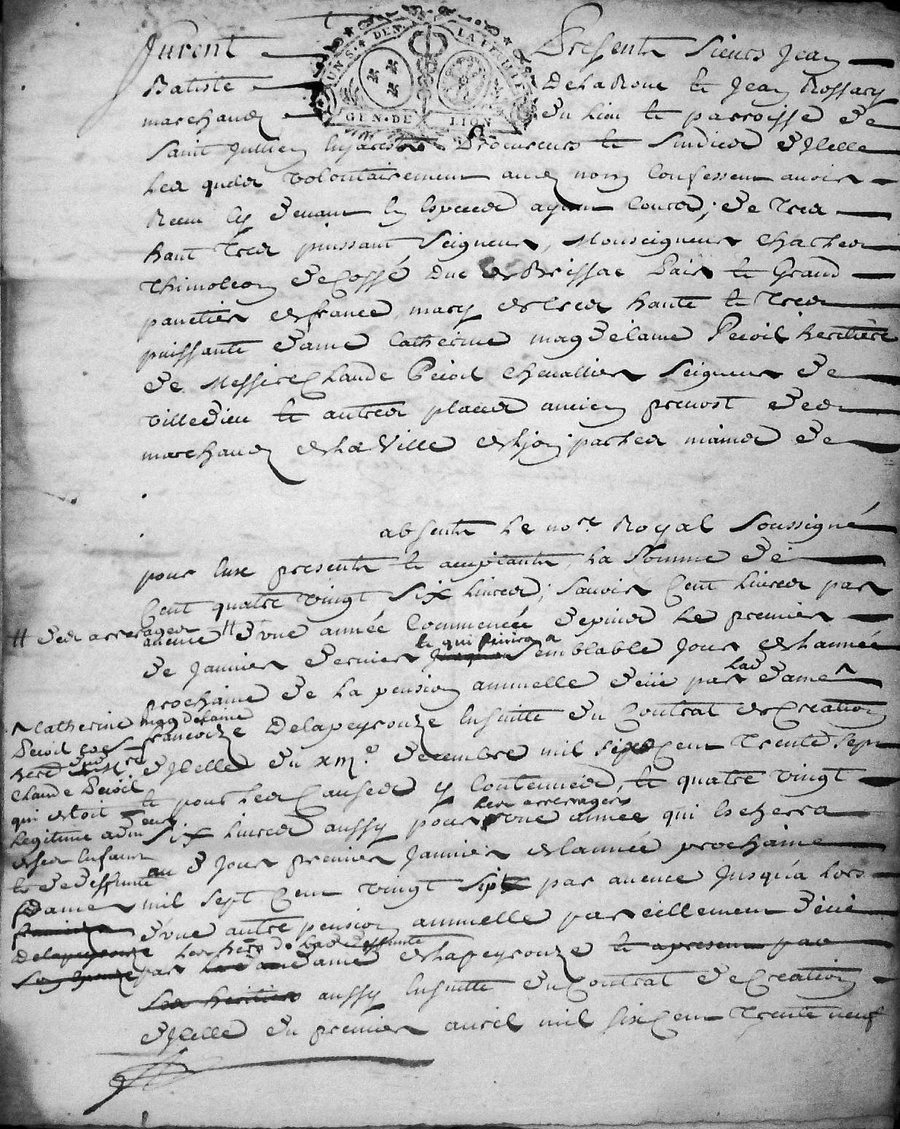 furent Presents Sieurs Jean
UN S. 4 DEN. LA FEUILLE
GEN. DE LION
Batiste Delaroue et Jean Rossary
marchands du lieu et parroisse de
Saint Jullien Procureurs et Sindics d'Icelle
Les quels volontairement aux noms confessent avoir
Receu cy devant en especes ayant cours, de tres
haut tres puissant Seigneur, Monseigneur Charles
Thimoleon de Cossé Duc de Brissac Pair et Grand
panetier de france, mary de tres haute et tres
puissante dame Catherine magdelaine Pecoil heritiere
de Messire Claude Pecoil chevallier Seigneur de
villedieu et autres places ancien prevost des
marchands de la Ville de Lyon, par les mains de
absente le nore Royal Soussigné
pour luy presente et acceptante, la Somme de
Cent quatre vingt Six livres, scavoir Cent livres par
avence # d'une année commencée depuis le premier
# des arrerages
de Janvier dernier et qui finira a Semblable Jour de l'année
prochaine de la pension annuelle deüe par Lad dame
Catherine magdelaine
Pecoil
Claude Pecoil
qui estoit
legitime admeur
de ses Enfans
et de deffunte
dame
Delapeyrouze
francoize Delapeyrouze Ensuitte du Contrat de Creation
d'Icelle du xme decembre mil six Cent Trente Sept
et pour les Causes y Contenues, et quatre vingt
Six livres aussy pour les arrerages d'une année qui Escherra
au d Jour premier Janvier de l'année prochaine
mil Sept Cent vingt Sept par avence Jusqu'a lors
d'une autre pension annuelle pareillement deüe
par Les hers de Lad deffunte dame de Lapeyrouze et apresent par
Les heritiers aussy Ensuitte du Contrat de Creation
d'Icelle du premier avril mil six Cent Trente neuf